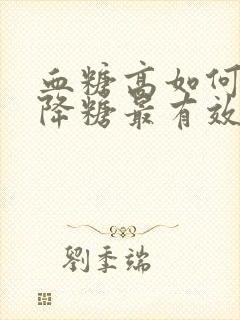 血糖高如何
降糖最有效
劉季端